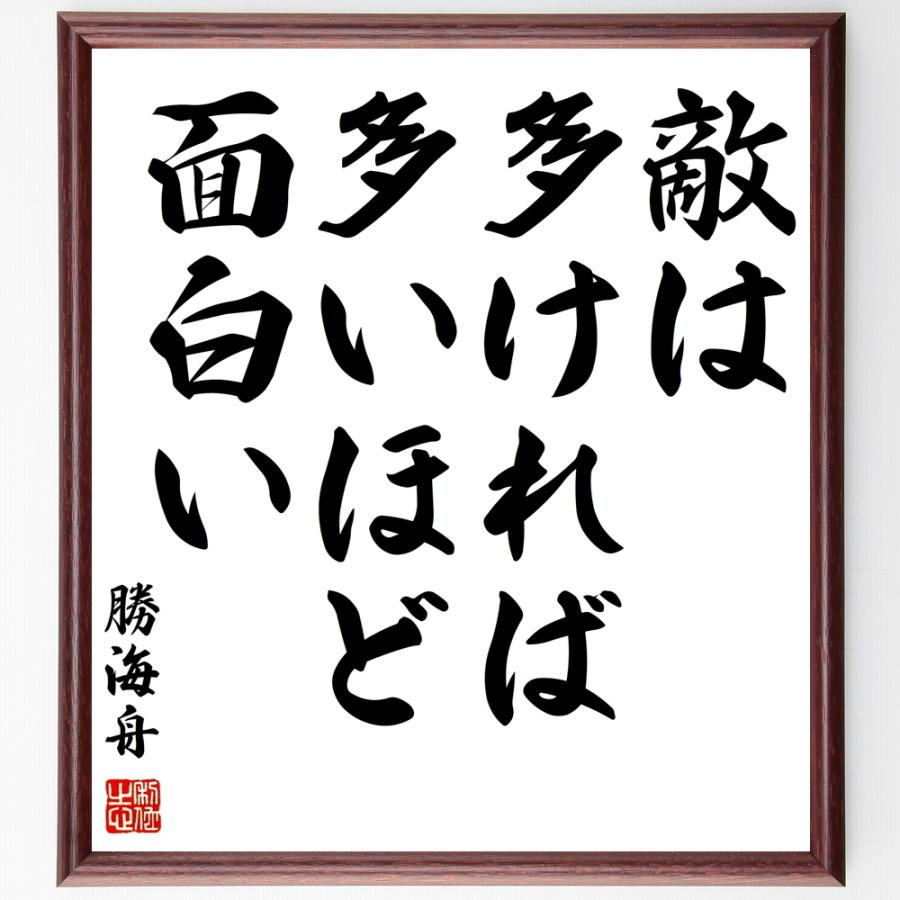 敵は
多ければ
多いほど
面白い
勝海舟